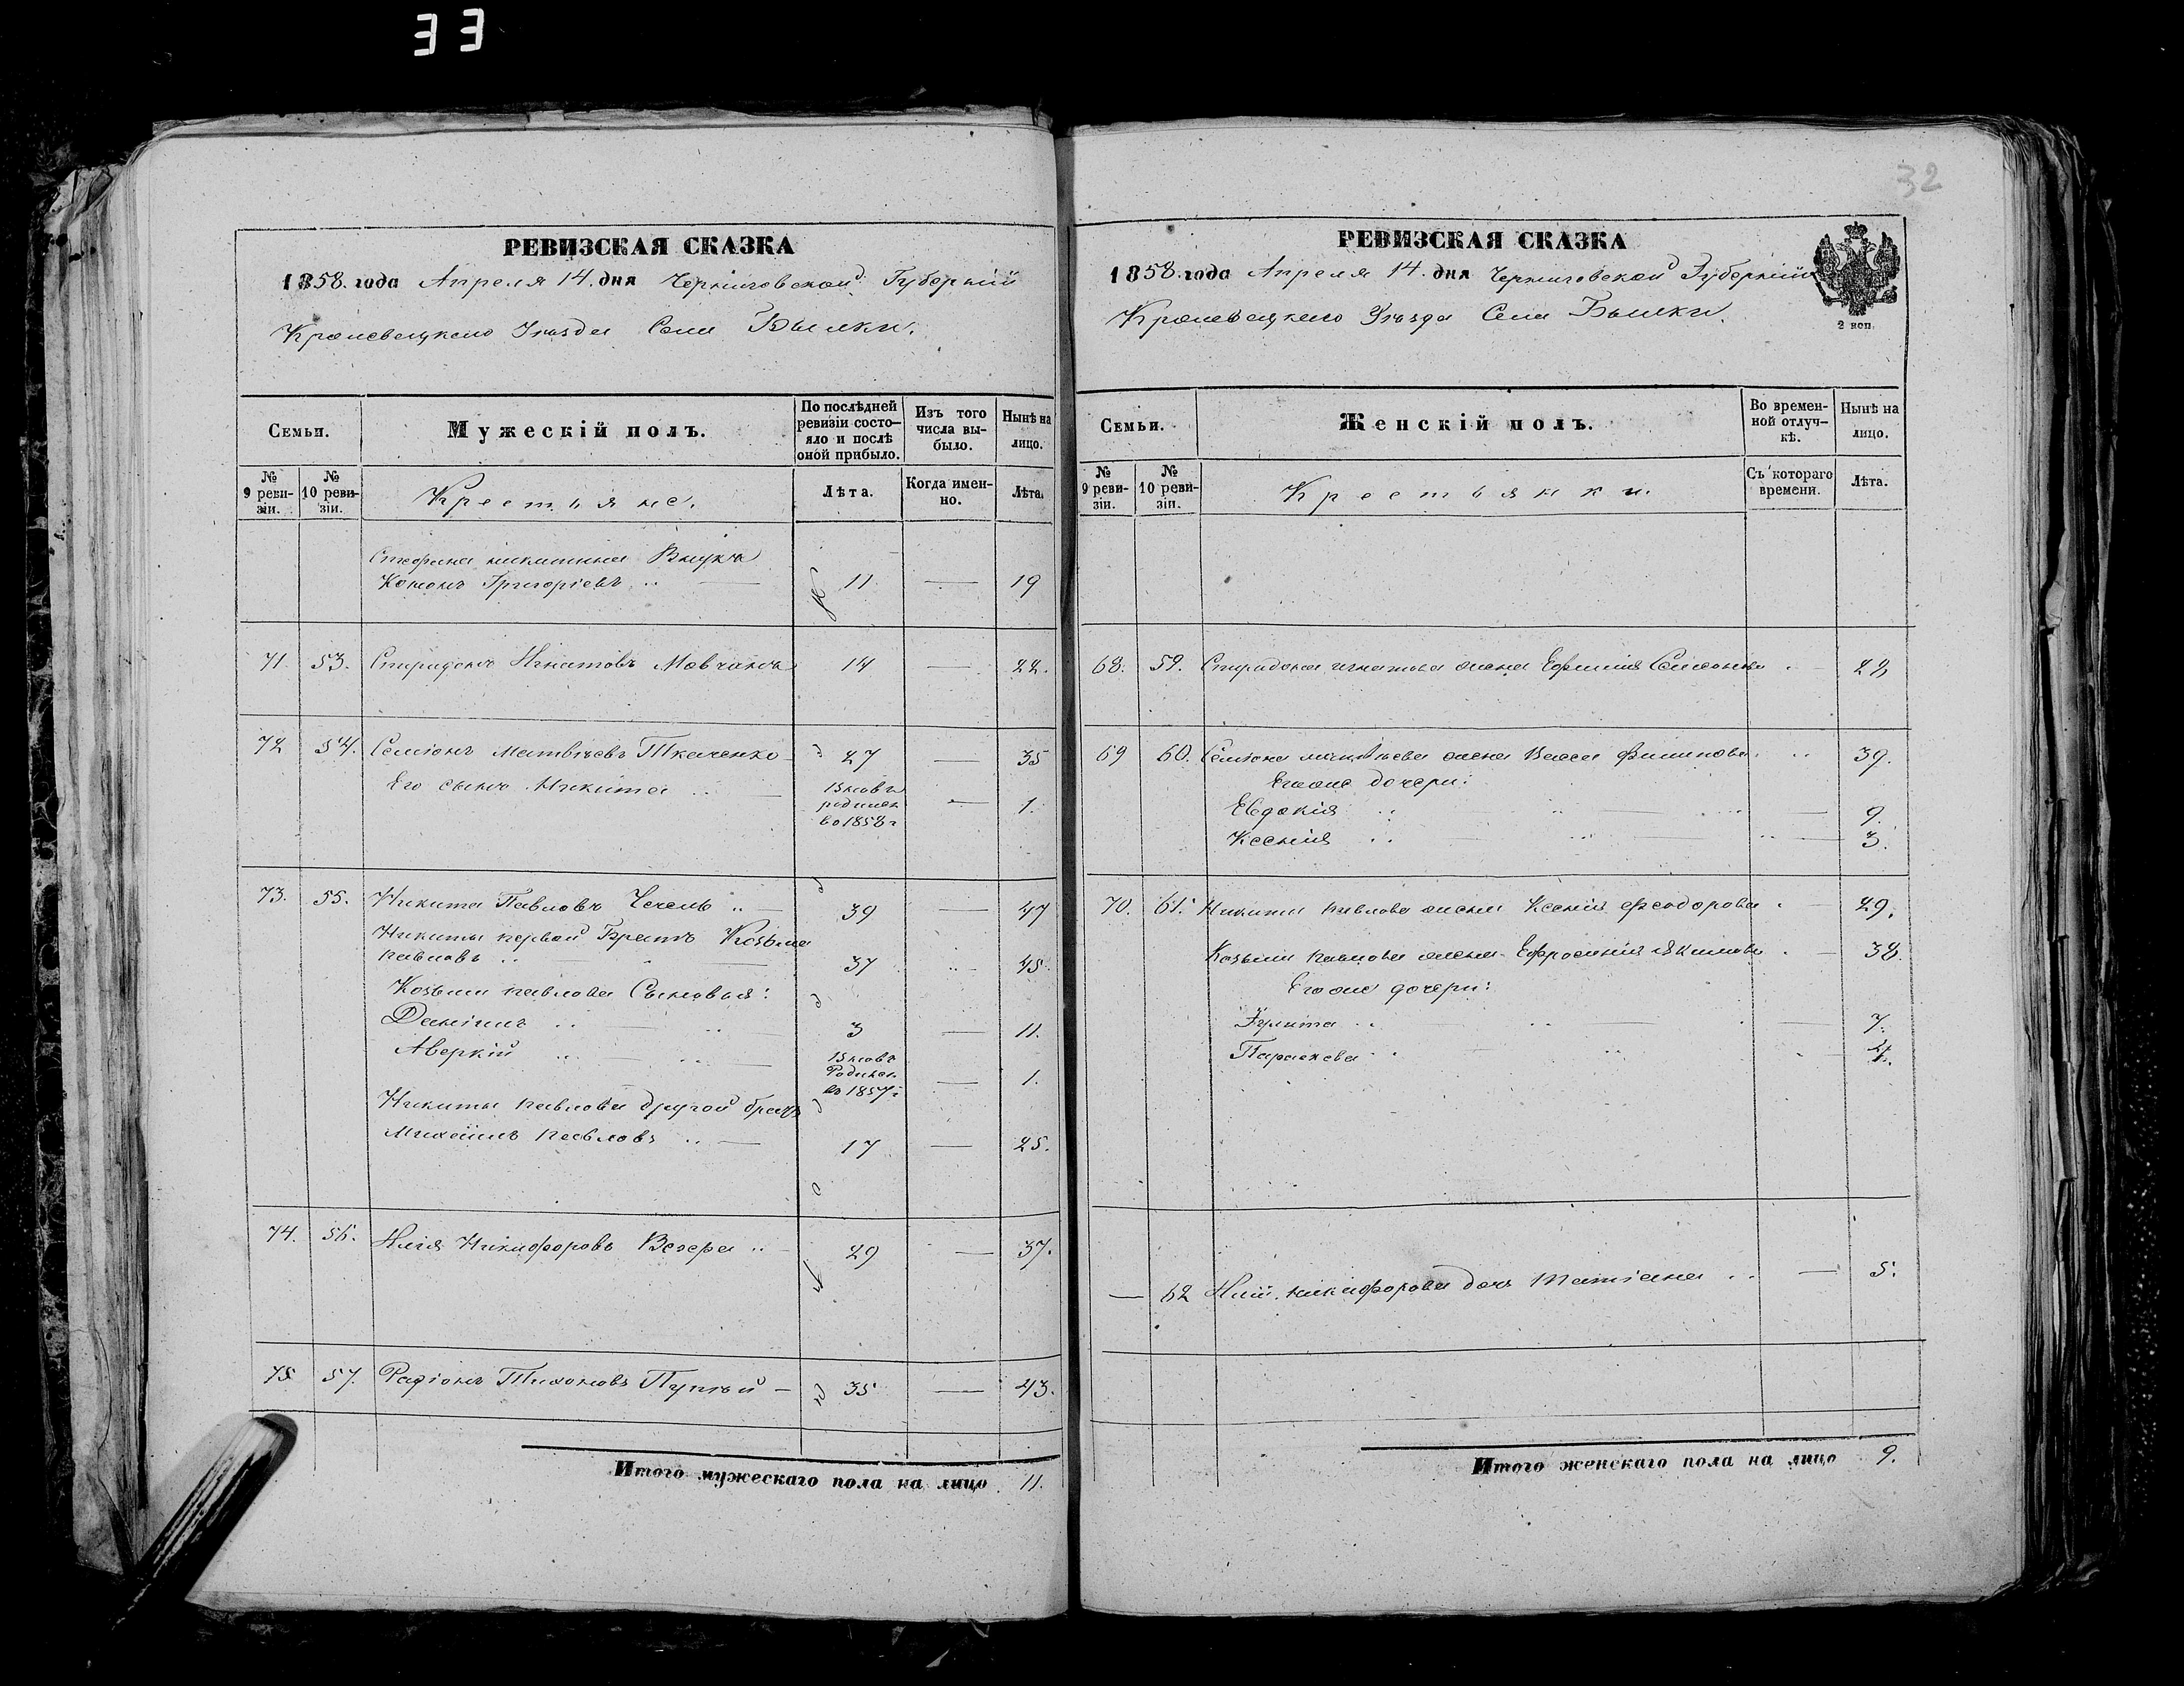 33
32
РЕВИЗСКАЯ СКАЗКА
1858. года Апреля 14. дня Черниговской Губерніи
Кролевецкаго Уѣзда Села Быики.
Семьи.
Мужескій полъ.
По послѣдней
ревизіи состо-
яло и послѣ
оной прибыло.
Изъ того
числа вы-
было.
Нынѣ на
лицо.
№
9 реви-
зіи.
№
10 реви-
зіи.
Крестьяне.
Лѣта.
Когда имен-
но.
Лѣта.
Стефана никитина Внукъ
Кононъ Григоріевъ .. — 11 — 19
71. 53. Спиридонъ Игнатовъ Мовчанъ 14 — 22.
72 54. Семіонъ Матвѣевъ Ткаченко 27 — 35
Его сынъ Никита .. — Вновь
родился — 1.
во 1858 г
73. 55. Никита Павловъ Чечель .. — 39 — 47
Никиты первой Братъ Козьма
павловъ .. — 37 .. 45.
Козьмы павлова Сыновья:
Даніилъ .. — 3 — 11.
Аверкій .. — Вновь
Родился — 1.
во 1857 г
Никиты павлова другой братъ
Михаилъ павловъ .. — 17 — 25.
74. 56. Илія Никифоровъ Вечера .. 29 — 37.
75 57. Радіонъ Тихоновъ Пупчый — 35 — 43.
Итого мужескаго пола на лицо 11.
РЕВИЗСКАЯ СКАЗКА
2 коп.
1858. года Апреля 14. дня Черниговской Губерніи
Кролевецкаго Уѣзда Села Быики.
Семьи.
Женскій полъ.
Во времен-
ной отлуч-
кѣ.
Нынѣ на
лицо.
№
9 реви-
зіи.
№
10 реви-
зіи.
Крестьянки.
Съ котораго
времени.
Лѣта.
68. 59. Спиридона игнатова жена Ефимія Семіонова . — 22
69 60. Семіона матвѣева жена Васса Филипова .. 39.
Егоже дочери:
Евдокія .. — 9.
Ксенія .. — 3.
70. 61. Никиты павлова жена Ксенія Феодорова . — 29.
Козьмы павлова жена Ефросинія Якимова . — 38.
Егоже дочери:
Улита .. — 7.
Параскева .. 4.
— 62 Иліи никифорова дочь Татіана .. — 5.
Итого женскаго пола на лицо 9.